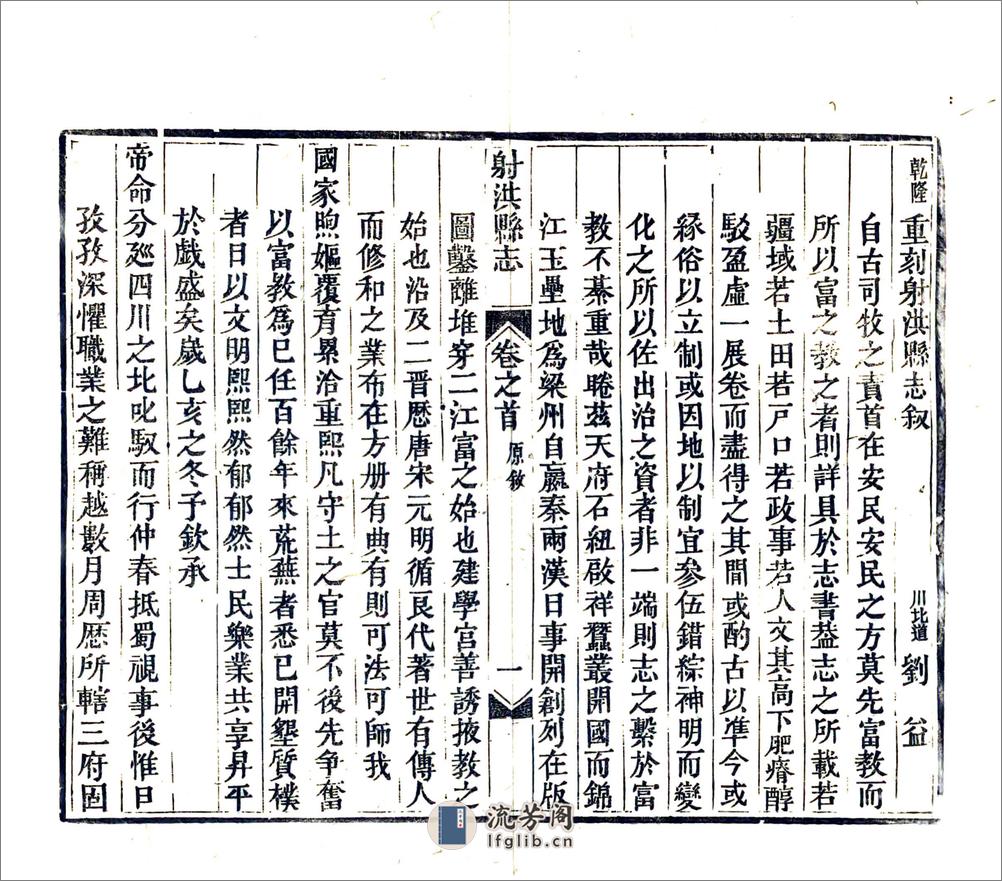 乾隆重刻射洪縣志叙 川北道劉 益
自古司牧之責首在安民安民之方莫先富教而
所以富之教之者則詳具於志書葢志之所載若
疆域若土田若戸口若政事若人文其高下肥瘠醇
駁盈虛一展卷而盡得之其間或酌古以準今或
緣俗以立制或因地以制宜參伍錯綜神明而變
化之所以佐出治之資者非一端則志之繫於富
教不綦重哉睠茲天府石紐啟祥蠶叢開國而錦
江玉壘地為梁州自嬴秦兩漢日事開創列在版
射洪縣志 卷之首 原敘 一
圖鑿離堆穿二江富之始也建學宮善誘掖教之
始也沿及二晋歷唐宋元明循良代著世有傳人
而修和之業布在方册有典有則可法可師我
國家煦嫗覆育累洽重熙凡守土之官莫不後先争奮
以富教為已任百餘年來荒蕪者悉已開墾質樸
者日以文明熙熙然郁郁然士民樂業共享昇平
於戲盛矣歲乙亥之冬予欽承
帝命分廵四川之北叱馭而行仲春抵蜀視事後惟日
孜孜深懼職業之難稱越數月周歷所轄三府固
流芳阁
lfglib.cn